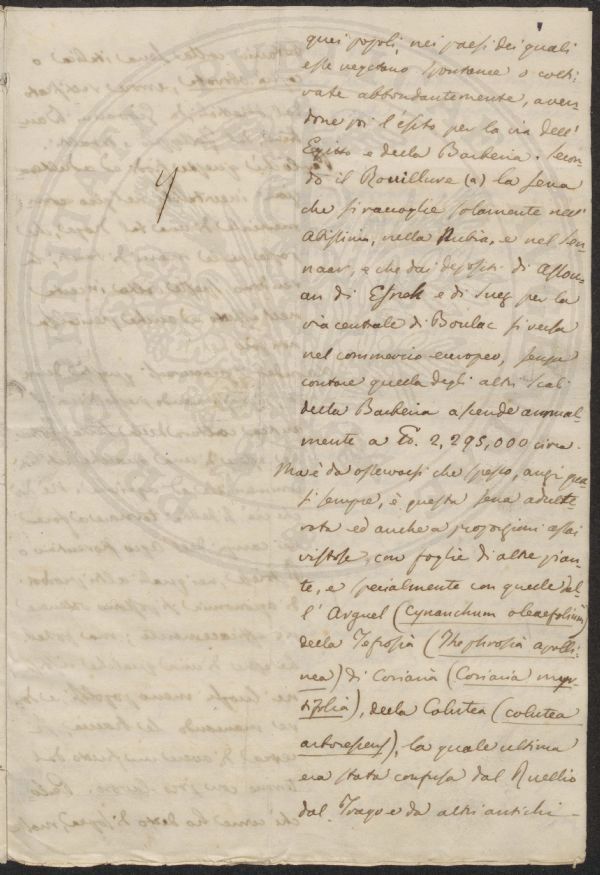 quei popoli, nei paesi dei quali
esse vegetano spontanee o colti
vate abbondantemente, aven
done poi l'esito per la via dell'
Egitto e della Barberia. Secon
do il Rouillure (a) la sena
che si raccoglie solamente nell'
Abissinia, nella Nubia, e nel Sen
naar, e che dai depositi di Assou
an di Esneh e di Suez per la
via centrale di Boulac si versa
nel commercio europeo, senza
contare quella degli altri scali
della Barberia ascende annual-
mente a 2,295,000 circa.
Ma è da osservarsi che spesso, anzi qua
si sempre, è questa sena adulte-
rata ed anche a proporzioni assai
vistose, con foglie di altre pian-
te, e specialmente con quelle del-
l'Arguel (Cynanchum oleaefolium)
della Tefrosia (Thephrosia apolli-
nea) di Coriaria (Coriaria myr-
tifolia), della Colutea (colutea
arborescens), la quale ultima
era stata confusa dal Ruellio
dal Trago e da altri antichi